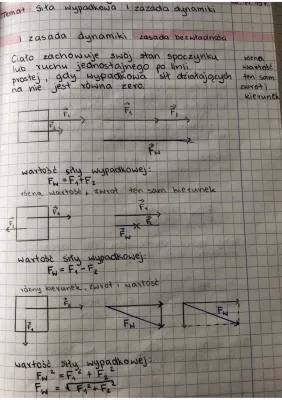 Temat: Siła wypadkowa i zasada dynamiki
I zasada dynamiki zasada bezwładności
Ciało zachowuje swój stan spoczynku
lub ruchu jednostajnego po linii
prostej, gdy wypadkowa sił działających
na nie jest równa zero.
wartość
ten sam
zwrot i
kierunek
F₁
F₁
F₂
F₂
Fw
wartość siły wypadkowej:
Fw = F₁ + F₂
różna wartość, zwrot ten sam kierunek
F₁
F₁
F₂
Fw
wartość siły wypadkowej:
Fw = F₁ - F₂
różny kierunek, zwrot i wartość
F₂
F₁
Fw
Fw
wartość siły wypadkowej:
Fw² = F₁² + F₂²
Fw = √F₁² + F₂²